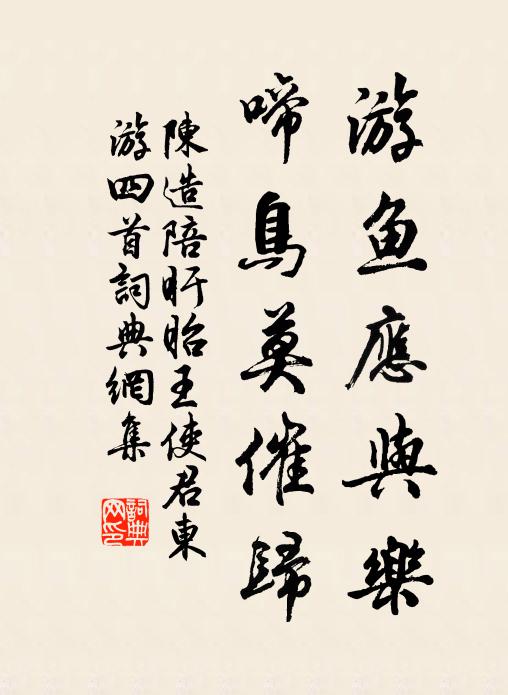 游鱼應與樂
啼鳥莫催歸
陳造陪盱眙王使君東
游四首詞典網集
詞典
网印